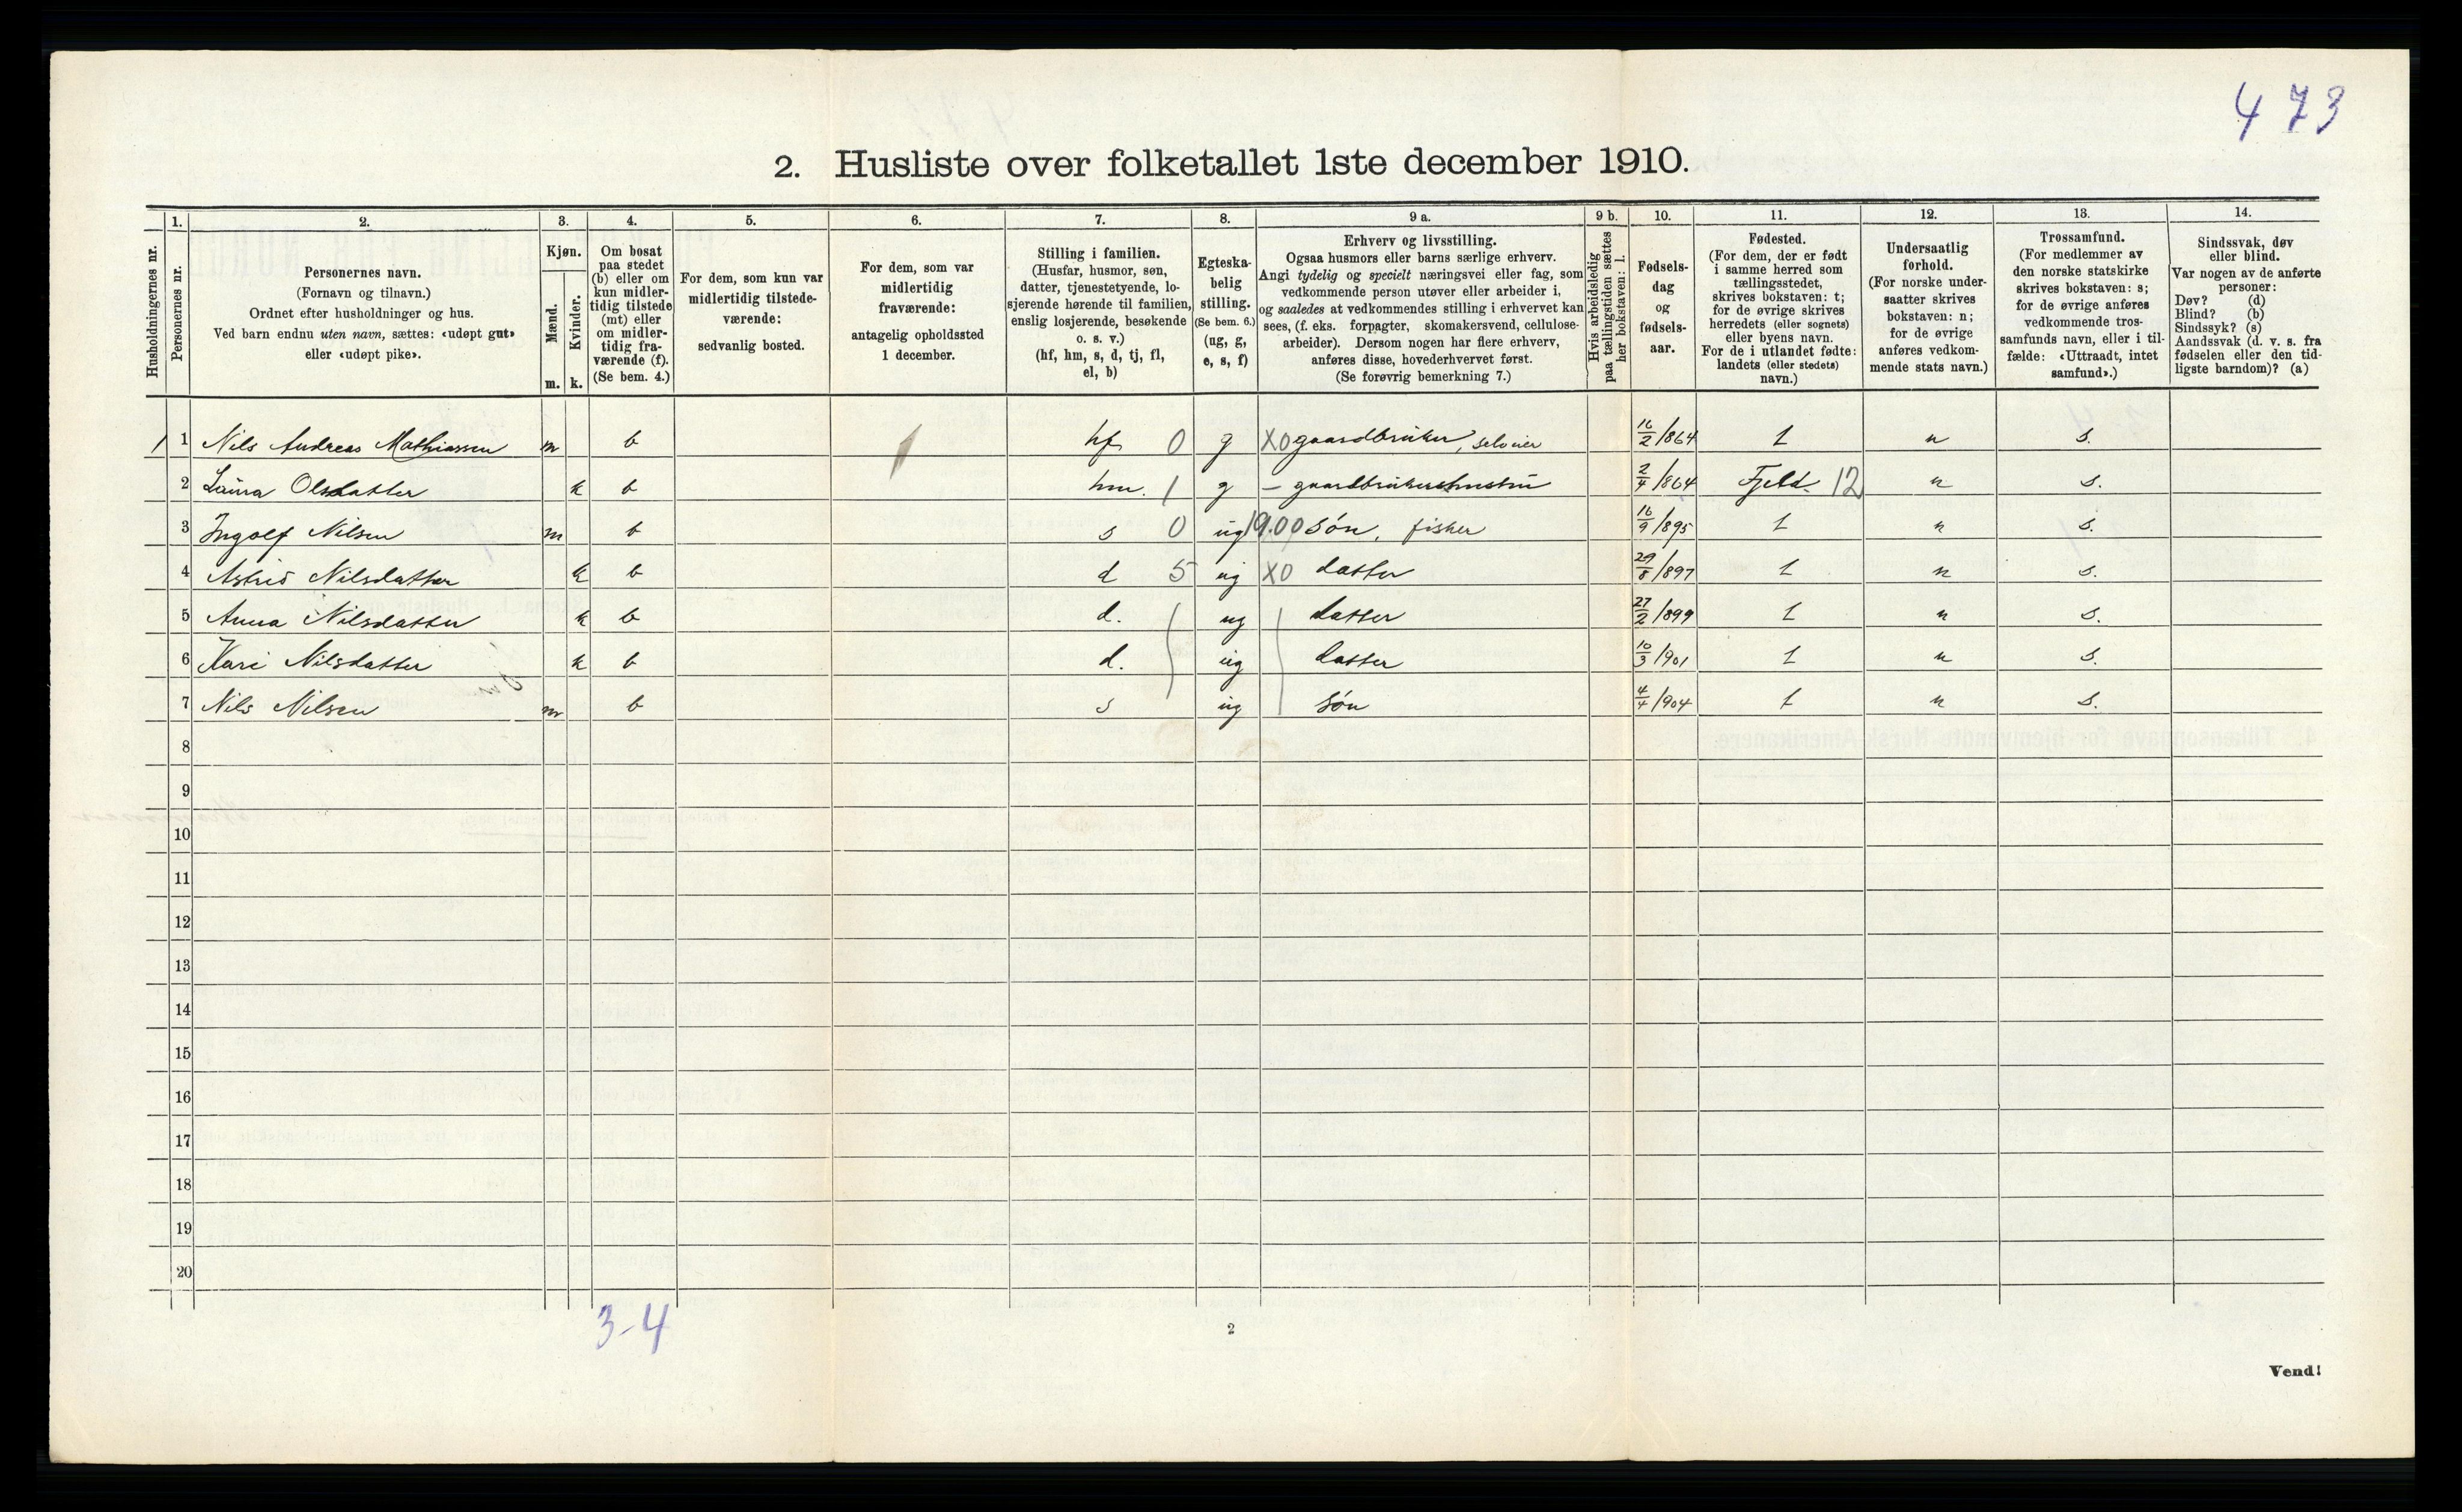 473
2. Husliste over folketallet 1ste december 1910.
Husholdningernes nr.
1.
Personernes nr.
2.
Personernes navn.
(Fornavn og tilnavn.)
Ordnet efter husholdninger og hus.
Ved barn endnu uten navn, sættes: «udøpt gut»
eller «udøpt pike».
3.
Kjøn.
Mænd.
Kvinder.
m. k.
4.
Om bosat
paa stedet
(b) eller om
kun midler-
tidig tilstede
(mt) eller
om midler-
tidig fra-
værende (f).
(Se bem. 4.)
5.
For dem, som kun var
midlertidig tilstede-
værende:
sedvanlig bosted.
6.
For dem, som var
midlertidig
fraværende:
antagelig opholdssted
1 december.
7.
Stilling i familien.
(Husfar, husmor, søn,
datter, tjenestetyende, lo-
sjerende hørende til familien,
enslig losjerende, besøkende
o. s. v.)
(hf, hm, s, d, tj, fl,
el, b)
8.
Egteska-
belig
stilling.
(Se bem. 6.)
(ug, g,
e, s, f)
9 a.
Erhverv og livsstilling.
Ogsaa husmors eller barns særlige erhverv.
Angi tydelig og specielt næringsvei eller fag, som
vedkommende person utøver eller arbeider i,
og saaledes at vedkommendes stilling i erhvervet kan
sees, (f. eks. forpagter, skomakersvend, cellulose-
arbeider). Dersom nogen har flere erhverv,
anføres disse, hovederhvervet først.
(Se forøvrig bemerkning 7.)
9 b.
Hvis arbeidsledig
paa tællingstiden sættes
her bokstaven: l.
10.
Fødsels-
dag
og
fødsels-
aar.
11.
Fødested.
(For dem, der er født
i samme herred som
tællingsstedet,
skrives bokstaven: t;
for de øvrige skrives
herredets (eller sognets)
eller byens navn.
For de i utlandet fødte:
landets (eller stedets)
navn.)
12.
Undersaatlig
forhold.
(For norske under-
saatter skrives
bokstaven: n;
for de øvrige
anføres vedkom-
mende stats navn.)
13.
Trossamfund.
(For medlemmer av
den norske statskirke
skrives bokstaven: s;
for de øvrige anføres
vedkommende tros-
samfunds navn, eller i til-
fælde: «Uttraadt, intet
samfund».)
14.
Sindssvak, døv
eller blind.
Var nogen av de anførte
personer:
Døv? (d)
Blind? (b)
Sindssyk? (s)
Aandssvak (d. v. s. fra
fødselen eller den tid-
ligste barndom)? (a)
1 1 Nils Andreas Mathiassen m b hf 0 g X0 gaardbruker, selveier 16/2/864 t n s.
2 Laura Olsdatter k b hm. 1 g - gaardbrukershustru 2/4/864 Fjeld 12 n s.
3 Ingolf Nilsen m b s 0 ug 19.00 søn, fisker 16/9/895 t n s.
4 Astrid Nilsdatter k b d 5 ug X0 datter 29/8/897 t n s.
5 Anna Nilsdatter k b d. ug datter 27/2/899 t n s.
6 Kari Nilsdatter k b d. ug datter 10/3/901 t n s.
7 Nils Nilsen m b s ug søn 4/4/904 t n s.
8
9
10
11
12
13
14
15
16
17
18
19
20
3-4
2
Vend!